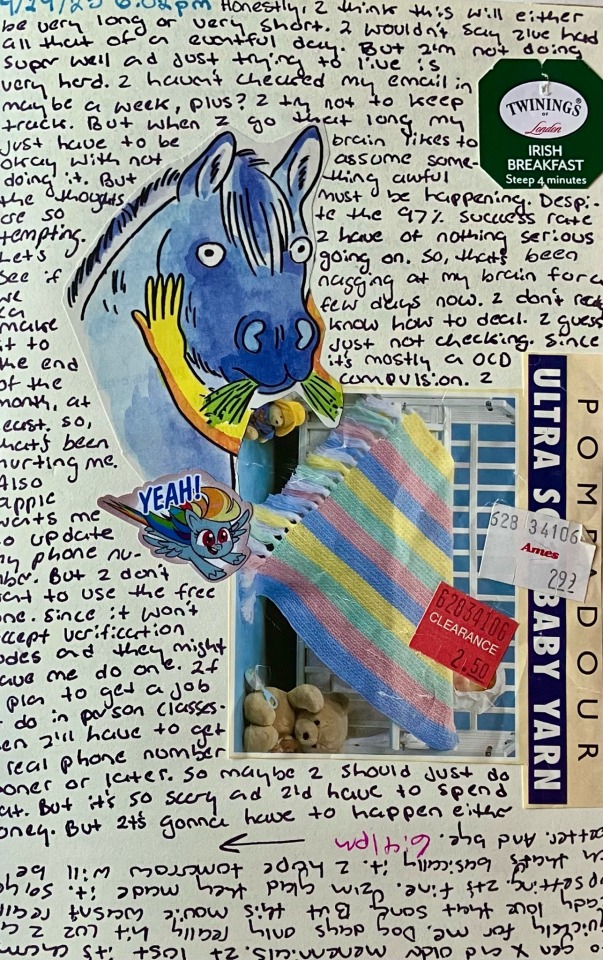 9/29/25 6:02pm Honestly, I think this will either
be very long or very short. I wouldn't say I've had
all that of a eventful day. But I'm not doing
super well ad just trying to live is
very hard. I haven't checked my email in
maybe a week, plus? I try not to keep
track. But when I go that long my
just have to be brain likes to
okay with not assume some-
doing it. But thing awful
the thoughts must be happening. Despi-
are so te the 97% success rate
tempting. I have of nothing serious
Let's going on. So, that's been
see if nagging at my brain for a
we few days now. I don't
ca know how to deal. I guess
make just not checking. Since
it to it's mostly a OCD
the end compulsion. I
of the
month, at
least. So,
that's been
hurting me.
Also
apple
wants me
to update
my phone nu-
mber. But I don't
want to use the free
one. Since it won't
accept verification
codes and they might
have me do one. If
I plan to get a job
or do in person classes.
Then I'll have to get
a real phone number
sooner or later. So maybe I should just do
that. But it's so scary ad I'd have to spend
money. But It's gonna have to happen either
TWININGS
OF
London
IRISH
BREAKFAST
Steep 4 minutes
YEAH!
POMPADOUR
ULTRA SO BABY YARN
628 34106
Ames
292
62834106
CLEARANCE
2.50
gen X and aldr menenials. At last it's
quickly for me. Dog days only really hit cuz I
love that song But this movie wasnt
upsetting. It's fine. I'm glad they made it. So,
that's basically it. I hope tomorrow will be
better. And bye. 6:41pm